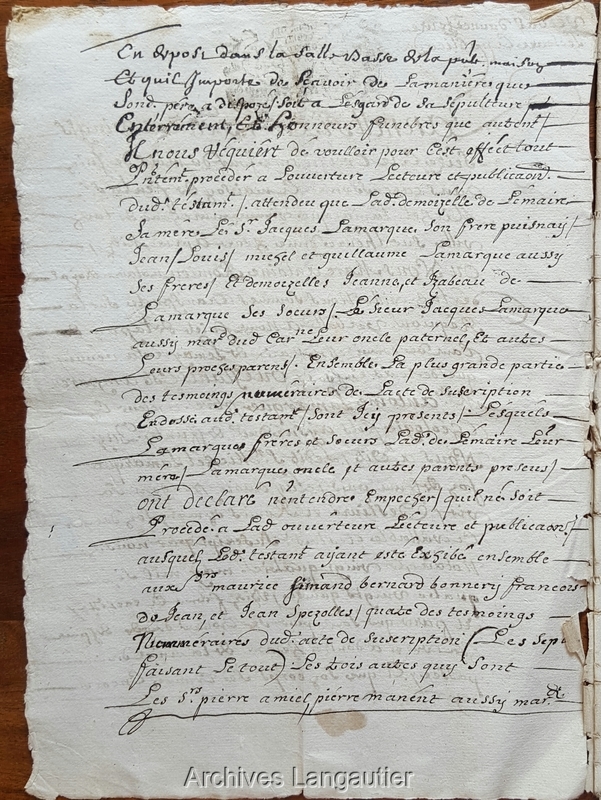 En depost dans la salle basse de la pnt. maison
Et quil Importe de scavoir de la maniere que
sond. pere a disposé soit a lesgard de sa sepulture
Enterrement, Et honneurs funebres que autent
Il nous requiert de voulloir pour cest effect tout
Pntemt. proceder a louverture lecture et publicaon
dud. testamt. / attendeu que Lad. demoizelle de Lemaire
sa mere Le sr. Jacques Lamarque son frere puisnay /
Jean / Louis / michel et guillaume Lamarque aussy
ses freres / Et demoizelles Jeanne, et Izabeau de
Lamarque ses soeurs / Le sieur Jacques Lamarque
aussy mard. dud Car ne Leur oncle paternel, Et autes
Leurs proches parens / Ensemble La plus grande partie
des tesmoings numeraires de Lacte de suscription
Endossé aud. testamt / sont Icy presents / Lesquels
Lamarque freres et soeurs Lad. de Lemaire Leur
mere / Lamarque oncle et autes parents presens /
ont declaré n'entendre Empecher / quil ne soit
Procédé a Lad ouverture Lecture et publicaon /
ausquels Led. testamt ayant esté Exhibé ensemble
aux srs maurice simand bernard bonnery francois
de Jean, et Jean spezolles / quatre des tesmoings
Nummeraires dud. acte de suscription (Les sept
faisant Le tout) Les trois autes quy sont
Les srs. pierre amiel, pierre manent aussy mard.
Archives Langautier